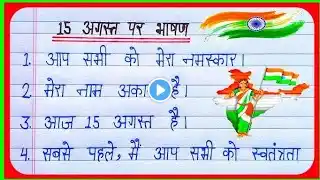 15 अगस्त पर भाषण
1. आप सभी को मेरा नमस्कार।
2. मेरा नाम है।
3. आज 15 अगस्त है।
4. सबसे पहले, मैं आप सभी को स्वतंत्रता